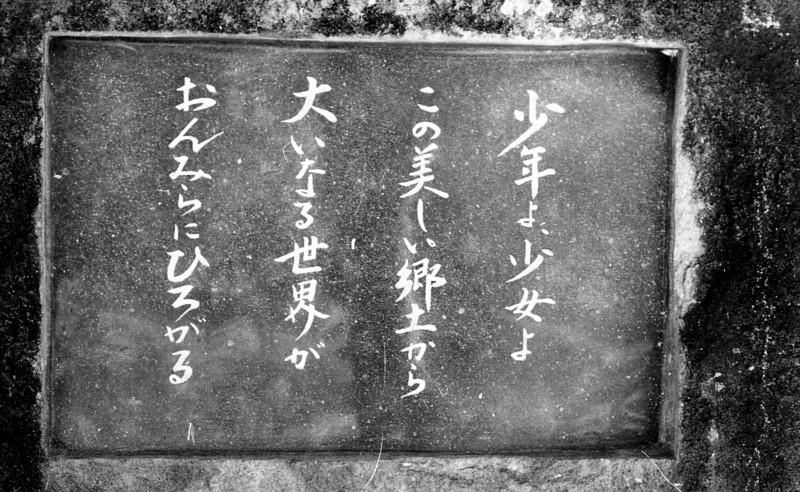 少年よ、少女よ
この美しい郷土から
大いなる世界が
おんみらにひろがる